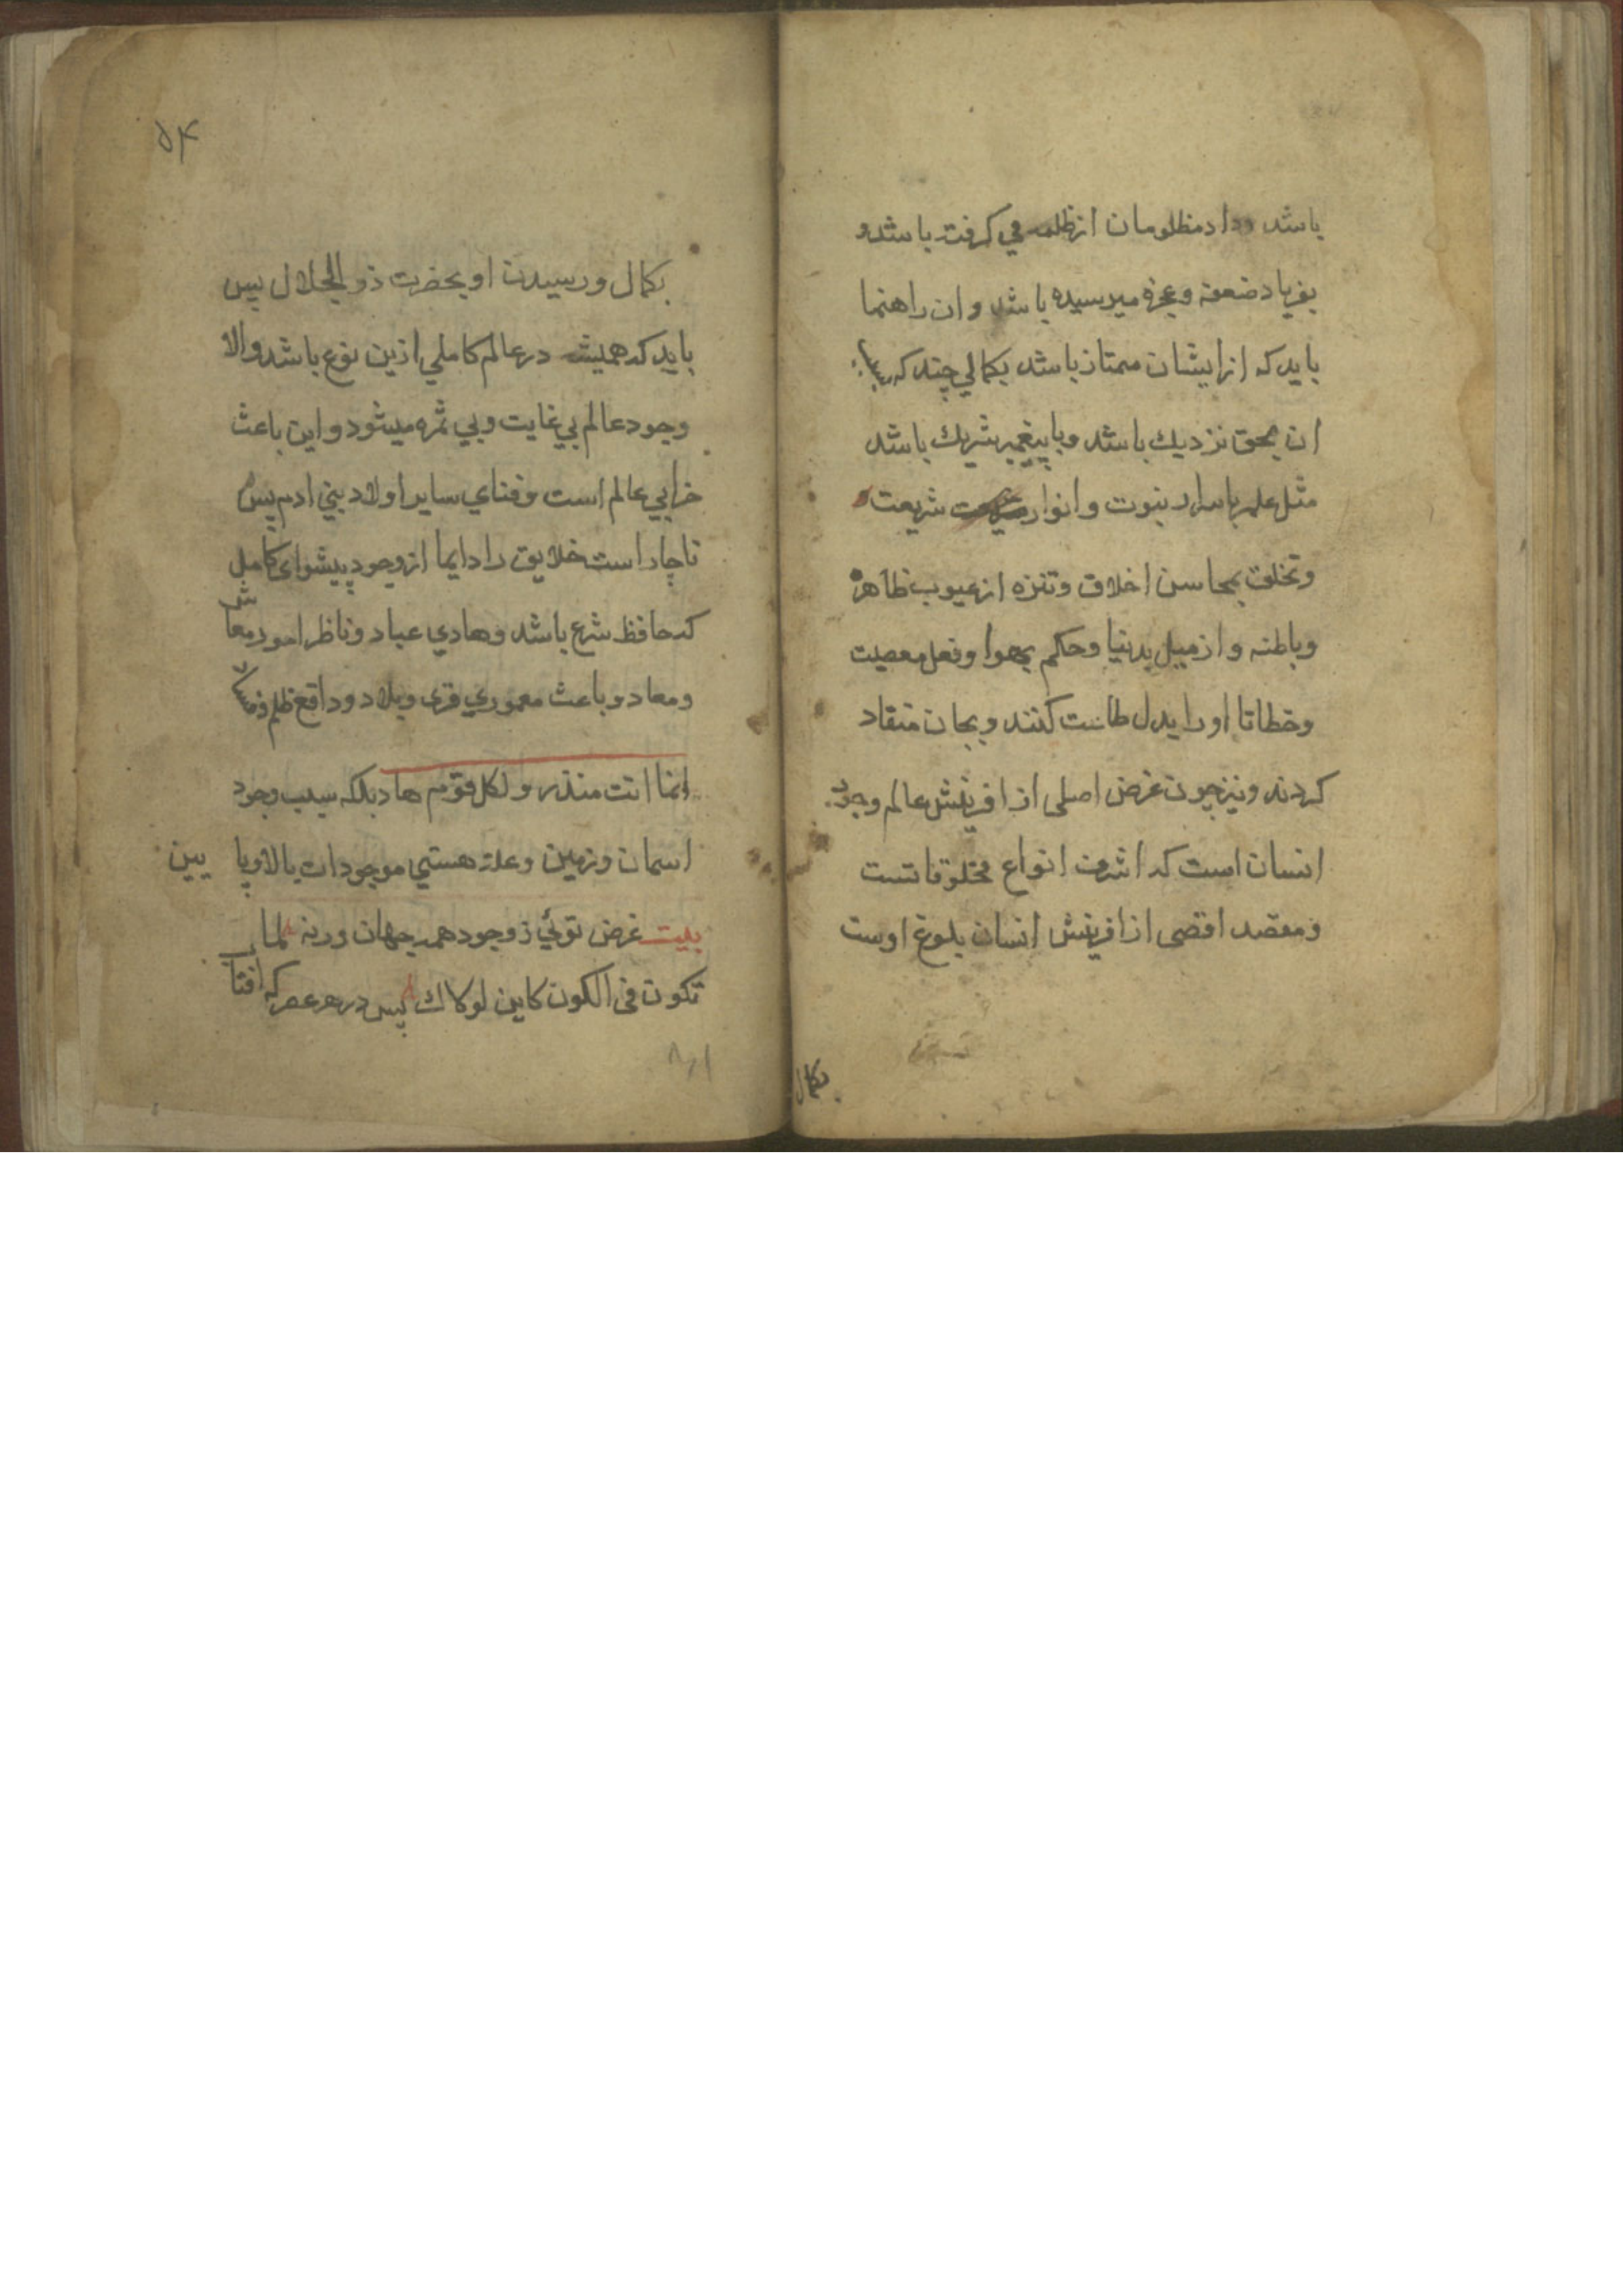 باشد وداد مظلومان از ظلمه مي کرفته باشد و
بفریاد ضعفه و عجزه میرسیده باشد و ان راهنما
باید که از ایشان ممتاز باشد بکمالي چند که بسبب
ان بحق نزدیك باشد و با پیغمبر شریك باشد
مثل علم باسرار نبوت و انوار شریعت
وتخلق بمحاسن اخلاق وتنزه از عیوب ظاهره
وباطنه و از میل بدنیا وحکم بهوا وفعل معصیت
وخطا تا او را بدل طاعت کنند و بجان منقاد
کردند و نیز چون غرض اصلی از افرینش عالم وجود
انسان است که اشرف انواع مخلوقاتست
ومقصد اقصی از افرینش انسان بلوغ اوست
بکمال
۵۴
بکمال و رسیدن او بحضرت ذو الجلال پس
باید که همیشه در عالم کاملي ازین نوع باشد والا
وجود عالم بي غایت وبي ثمره میشود و این باعث
خرابي عالم است وفناي سایر اولاد بني ادم پس
ناچار است خلایق را دایما از وجود پیشوای کامل
که حافظ شرع باشد وهادي عباد وناظر امور معاش
ومعاد و باعث معموري قری وبلاد و دافع ظلم
انما انت منذر و لکل قوم هاد بلکه سبب وجود
اسمان و زمین وعلة هستي موجودات بالا و پا یین
بیت غرض توئي ز وجود همه جهان ورنه لما
تکون فی الکون کاین لولاك پس در هر عصر که افتاب